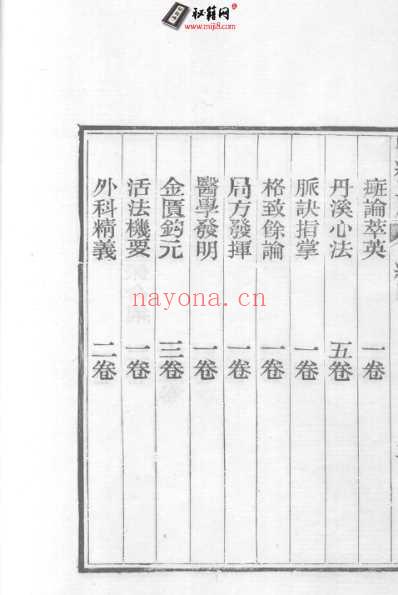 秘籍网
www.miji8.com
癍論萃英 一卷
丹溪心法 五卷
脈訣指掌 一卷
格致餘論 一卷
局方發揮 一卷
醫學發明 一卷
金匱鉤元 三卷
活法機要 一卷
外科精義 二卷
nayona.cn